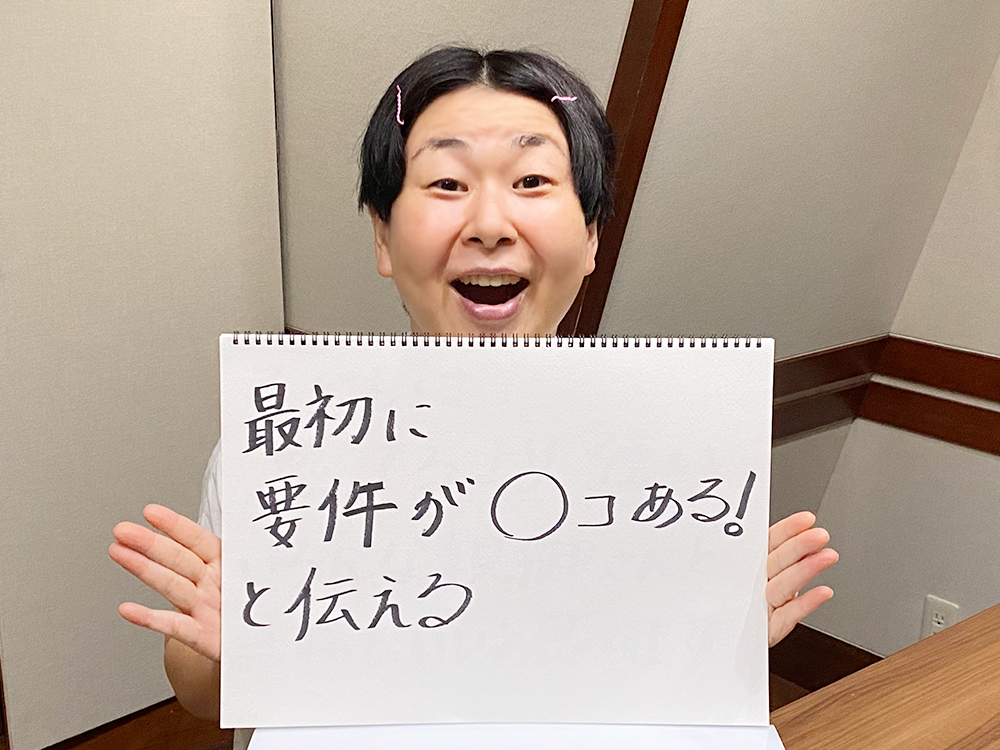 最初に
要件が○コある!
と伝える